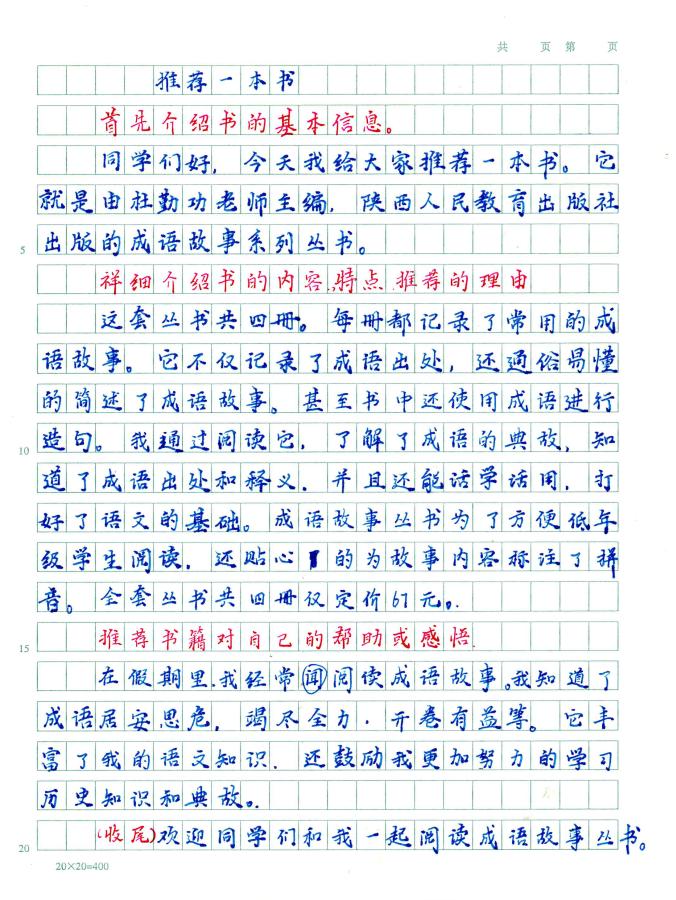 共 页 第 页
推荐一本书
首先介绍书的基本信息。
同学们好，今天我给大家推荐一本书。它
就是由杜勤功老师主编，陕西人民教育出版社
5 出版的成语故事系列丛书。
祥细介绍书的内容、特点、推荐的理由
这套丛书共四册。每册都记录了常用的成
语故事。它不仅记录了成语出处，还通俗易懂
的简述了成语故事。甚至书中还使用成语进行
10 造句。我通过阅读它，了解了成语的典故，知
道了成语出处和释义．并且还能活学活用，打
好了语文的基础。成语故事丛书为了方便低年
级学生阅读，还贴心的为故事内容标注了拼
音。全套丛书共四册仅定价67元。
15 推荐书籍对自己的帮助或感悟
在假期里，我经常阅读成语故事。我知道了
成语居安思危，竭尽全力．开卷有益等。它丰
富了我的语文知识．还鼓励我更加努力的学习
历史知识和典故。
20 (收尾)欢迎同学们和我一起阅读成语故事丛书。
20×20=400